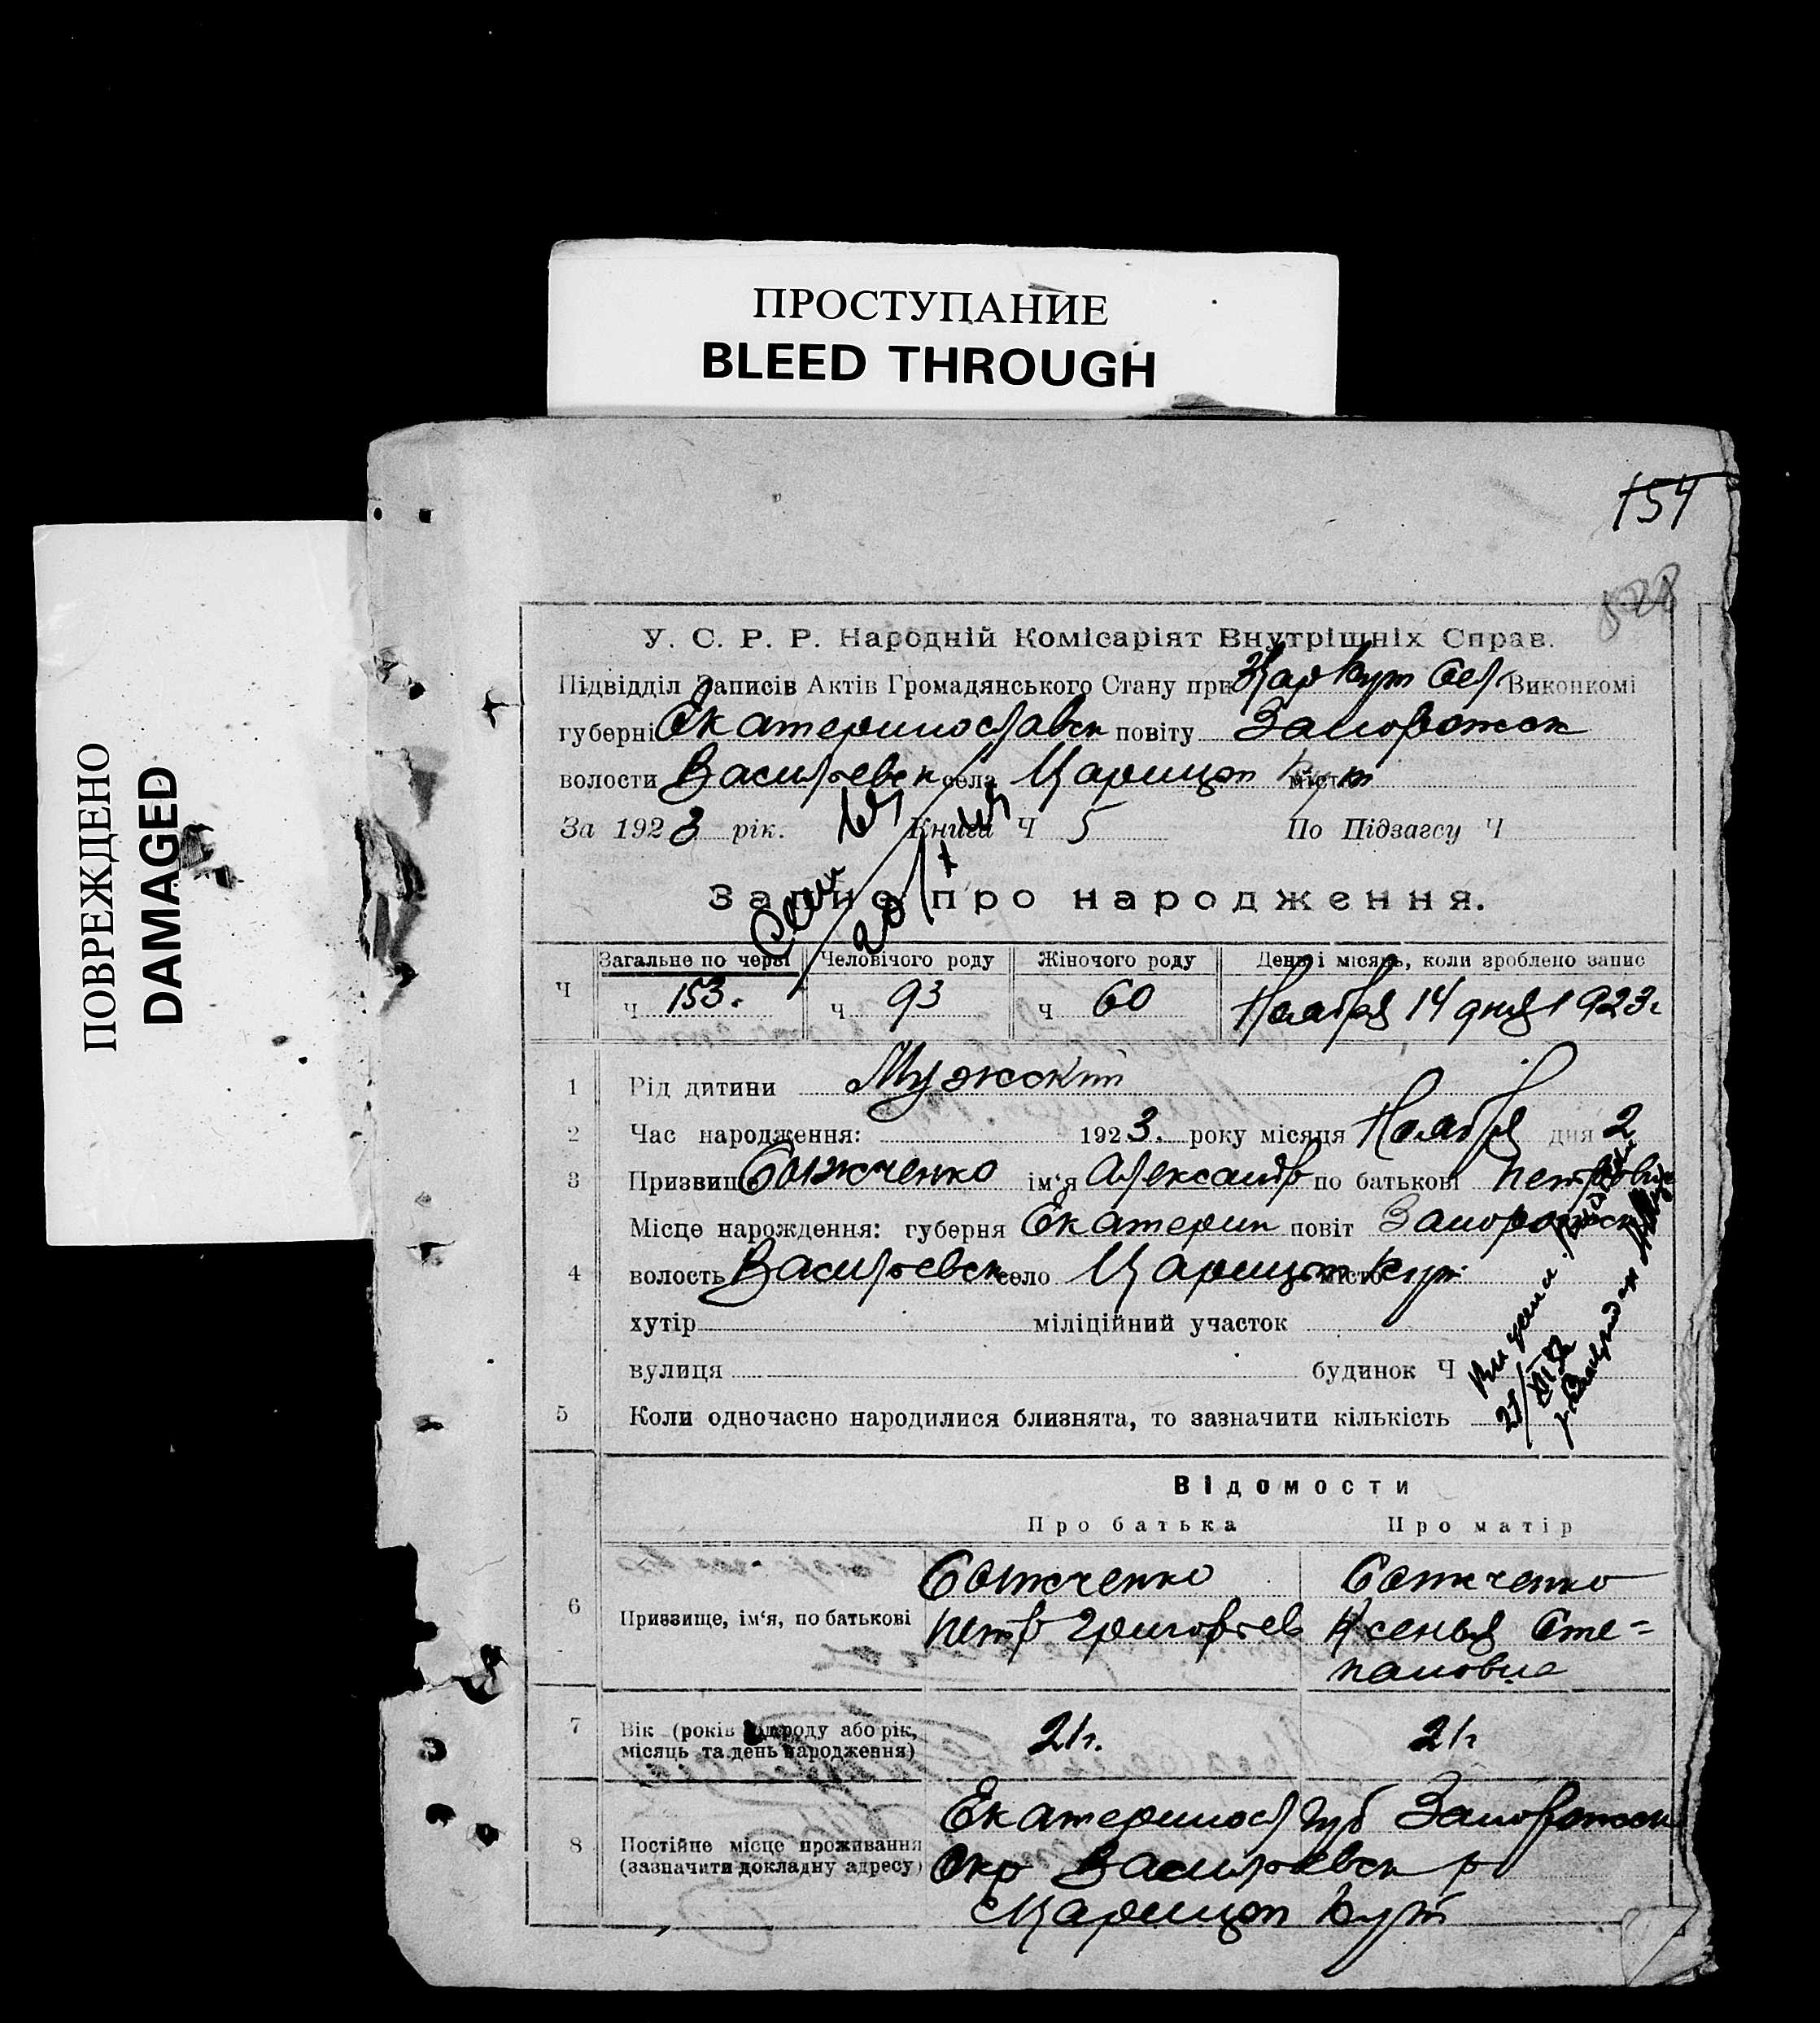 ПРОСТУПАНИЕ
BLEED THROUGH
ПОВРЕЖДЕНО
DAMAGED
154
У. С. Р. Р. Народній Комісаріят Внутрішніх Справ.
Підвідділ Записів Актів Громадянського Стану при Цар Кут Сел Виконкомі
губерні Екатеринославск повіту Запорожск
волости Васильевск села Царицын Кут місто
За 1923 рік. Книга Ч 5 По Підзагсу Ч
Запис про народження.
Ч Загальне по черзі Человічого роду Жіночого роду День і місяць, коли зроблено запис
Ч 153. Ч 93 Ч 60 Ноября 14 дня 1923 г
1 Рід дитини Мужский
2 Час народження: 1923. року місяця Ноября дня 2
3 Призвище ім'я Александр по батькові Петрович
Місце народження: губерня Екатерин повіт Запорожск
4 волость Васильевск село Царицын Кут місто
хутір міліційний участок
вулиця будинок Ч
5 Коли одночасно народилися близнята, то зазначити кількість
Відомости
Про батька Про матір
6 Призвище, ім'я, по батькові
Петр Григорьев Ксенья Сте=
пановна
7 Вік (років від роду або рік, місяць та день народження) 21 г. 21 г
8 Постійне місце проживання (зазначити докладну адресу)
Екатериносл губ Запорожск
Окр Васильевск р
Царицын Кут